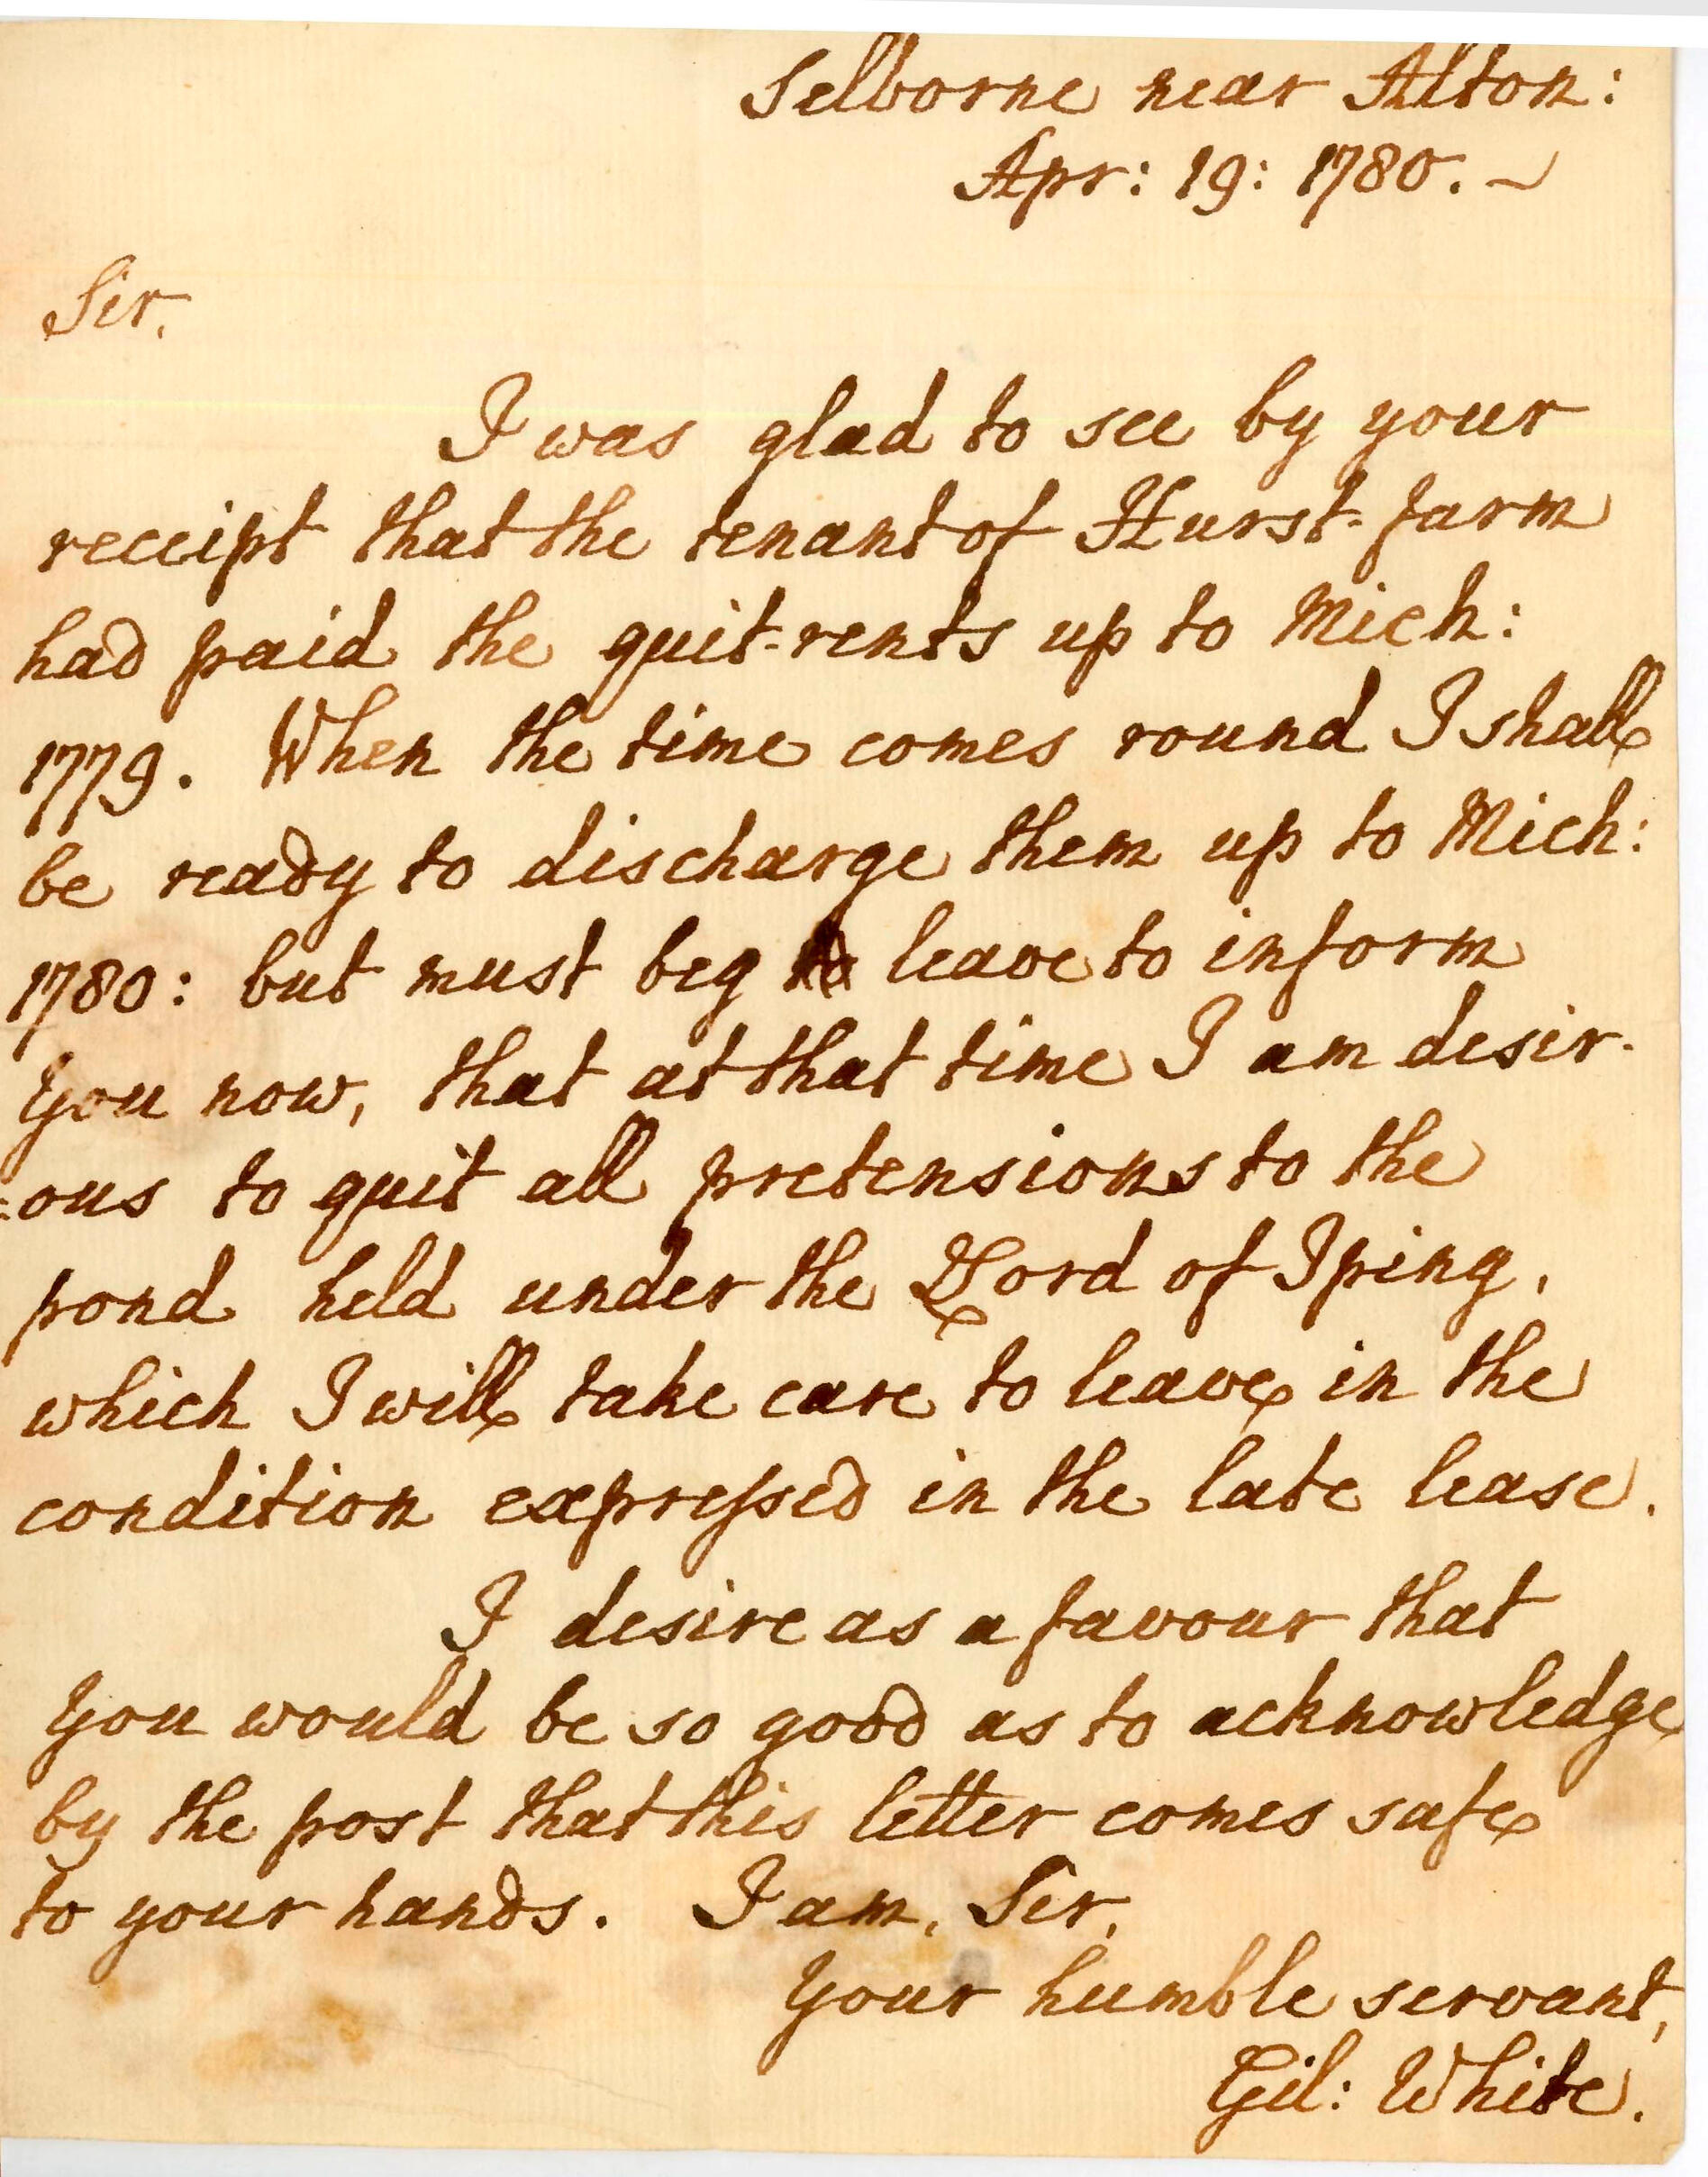 Selborne near Alton:
Apr: 19: 1780.
Sir,
I was glad to see by your
receipt that the tenant of Hurst-farm
had paid the quit-rents up to Mich:
1779. When the time comes round I shall
be ready to discharge them up to Mich:
1780: but must beg leave to inform
You now, that at that time I am desir-
=ous to quit all pretensions to the
pond held under the Lord of Iping,
which I will take care to leave in the
condition expreſsed in the late lease.
I desire as a favour that
You would be so good as to acknowledge
by the post that this letter comes safe
to your hands. I am, Sir,
Your humble servant,
Gil: White.